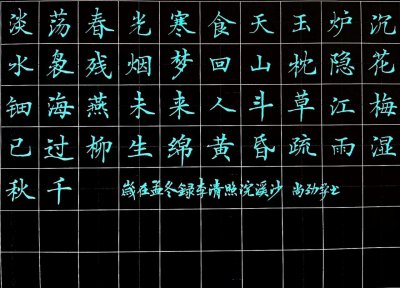 淡荡春光寒食天玉炉沉
水袅残烟梦回山枕隐花
钿海燕未来人斗草江梅
已过柳生绵黄昏疏雨湿
秋千 歲在孟冬録李清照浣溪沙 尚劲